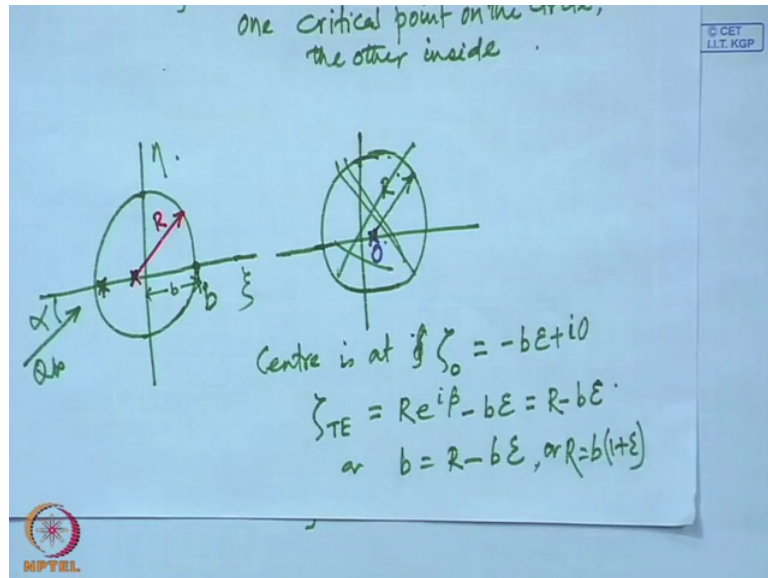 one critical point on the circle,
the other inside.
© CET
I.I.T. KGP
η.
R
R
b
b
ξ
α
Centre is at ζ₀ = -bε+i0
ζ_TE = Re^{iβ} - bε = R-bε.
or b = R-bε, or R=b(1+ε)
NPTEL